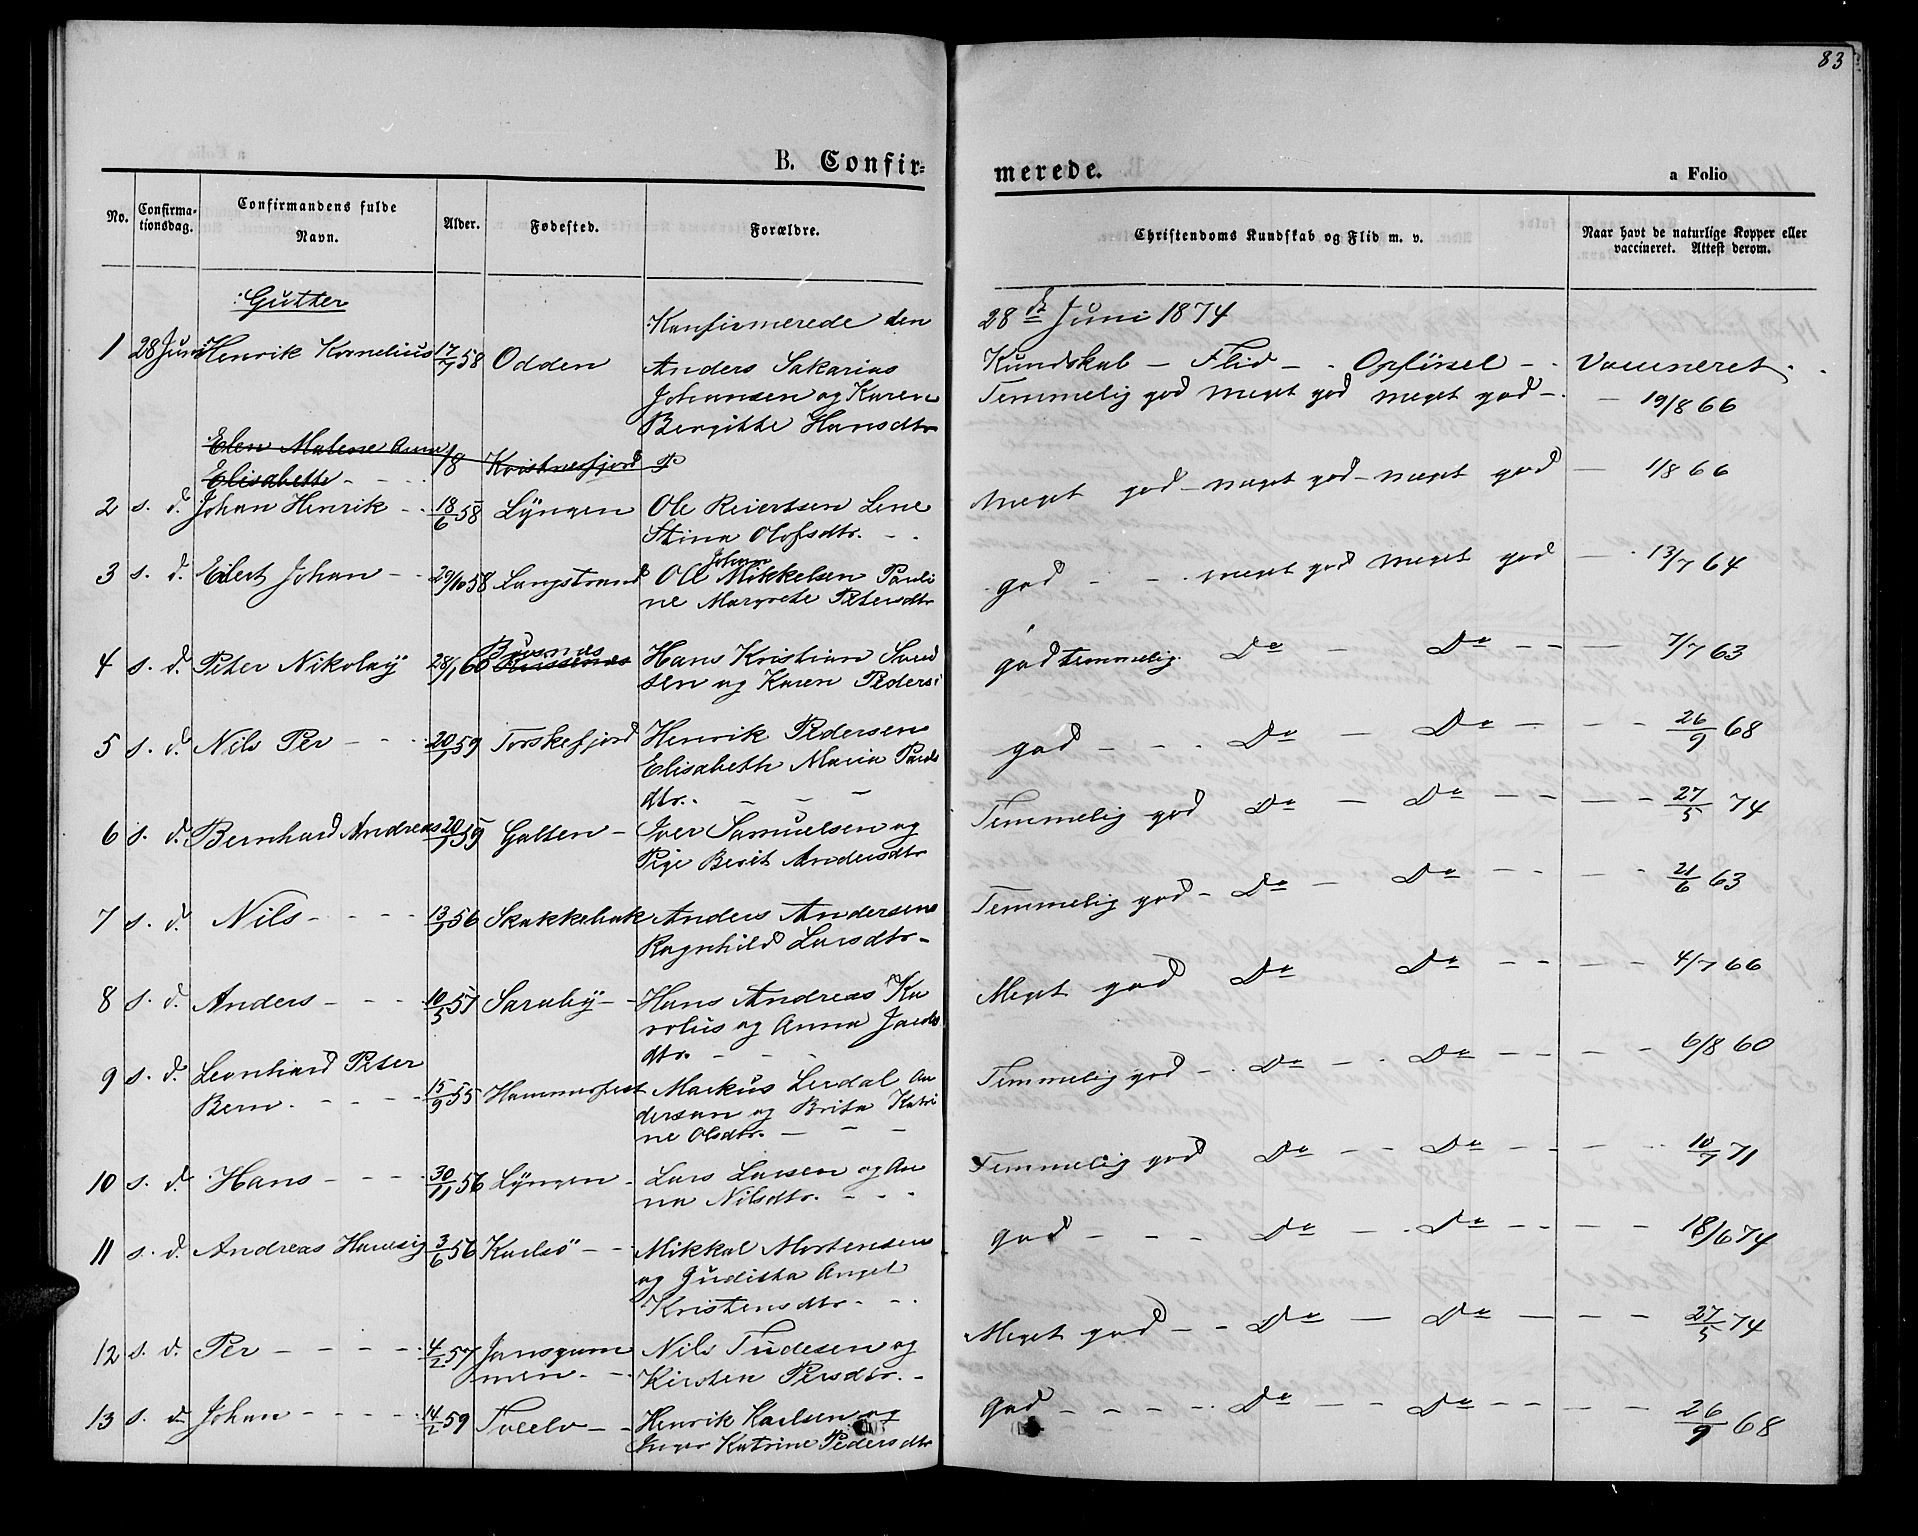 83
B. Confir-
merede.
a Folio
No.
Confirma-
tionsdag.
Confirmandens fulde
Navn.
Alder.
Fødested.
Forældre.
Christendoms Kundskab og Flid m. v.
Naar havt de naturlige Kopper eller
vaccineret. Attest derom.
Gutter
Konfirmerede den
28de Juni 1874
Kundskab - Flid - Opførsel - Vaccineret
1 28 Juni Henrik Kornelius 17/7 58 Odden Anders Sakarias
Johansen og Karen
Bergitte Hansdtr
Temmelig god meget god meget god - 19/8 66
Elen Malene Anna
Elisabeth - 18 Kristnesfjord P
2 s. d. Johan Henrik - 18/6 58 Lyngen Ole Reiertsen Lene
Stina Olofsdtr.
meget god - meget god - meget god - 1/8 66
3 s. d. Eilert Johan - 29/10 58 Langstrand Ole Johan Mikkelsen Pauli
ne Margrete Petersdtr
god - - meget god meget god - 13/7 64
4 s. d. Peter Nikolay 28/1 60 Busnes Hans Kristian
sen og Karen Peders
god temmelig. Do - Do - - 7/7 63
5 s. d. Nils Per - - 20/7 59 Torskefjord Henrik Pedersen
Elisabeth Maria Pauls
dtr. - - -
god - - - Do - Do - - - 26/9 68
6 s. d. Bernhard Andreas 20/7 59 Galten - Iver Samuelsen og
Pige Berit Andersdtr
Temmelig god Do - Do - - - 27/5 74
7 s. d. Nils - - - - 13/7 56 Skakkebak Anders Andersen
Ragnhild Larsdtr -
Temmelig god - Do - Do - - - 21/6 63
8 s. d. Anders - - - 10/5 57 Saraby - Hans Andreas Ka
rolus og Anna Jacobs
dtr. - -
Meget god Do Do - - - 4/7 66
9 s. d. Leonhard Peter
Bern. - - - - 15/9 55 Hammerfest Markus Lerdal An
dersen og Brita Katri
ne Olsdtr. - - -
Temmelig god - Do - Do - - - 6/8 60
10 s. d. Hans - - - 30/11 56 Lyngen - Lars Larsen og An
na Nilsdtr. - - -
Temmelig god Do - - Do - - - 10/7 71
11 s. d. Andreas 3/6 56 Karlsö - - Mikkal Mortensen
og Juditha Angel
Kristensdtr - -
god - - - Do - Do - - - 18/6 74
12 s. d. Per - - - - 4/2 57 Jansgam
men. - Nils Tudesen og
Kirsten Persdtr. -
Meget god - - Do - Do - - - 27/5 74
13 s. d. Johan - - - - 14/2 59 - - Henrik Karlsen og
Inger Katrine Pedersdtr
god - - - - Do - - Do - - - 26/9 68